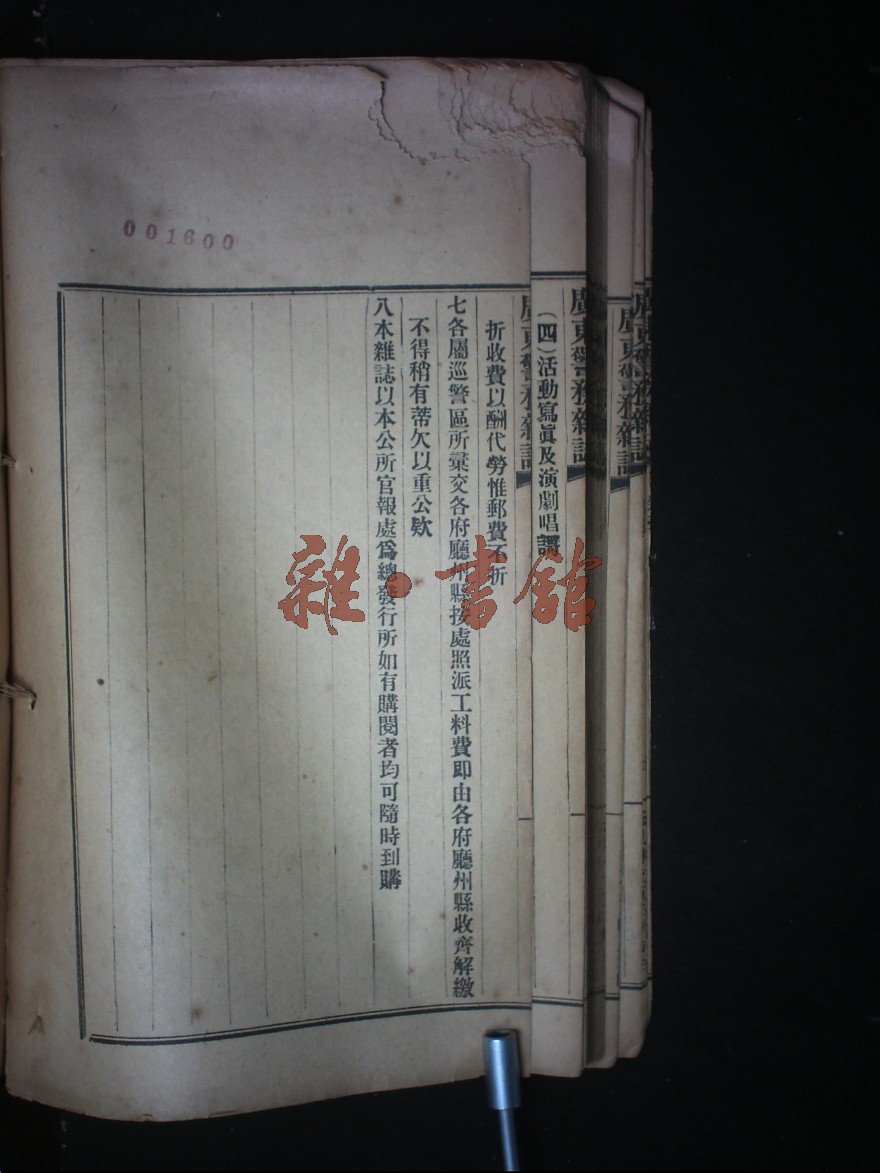 廣東警務雜誌
廣東警務雜誌
廣東警務雜誌
(四)活動寫眞及演劇唱
廣東警務雜誌
折收費以酬代勞惟郵費不折
七各屬巡警區所彙交各府廳州縣按處照派工料費即由各府廳州縣收齊解繳
不得稍有蒂欠以重公欵
八本雜誌以本公所官報處爲總發行所如有購閱者均可隨時到購
001600
雜·書館